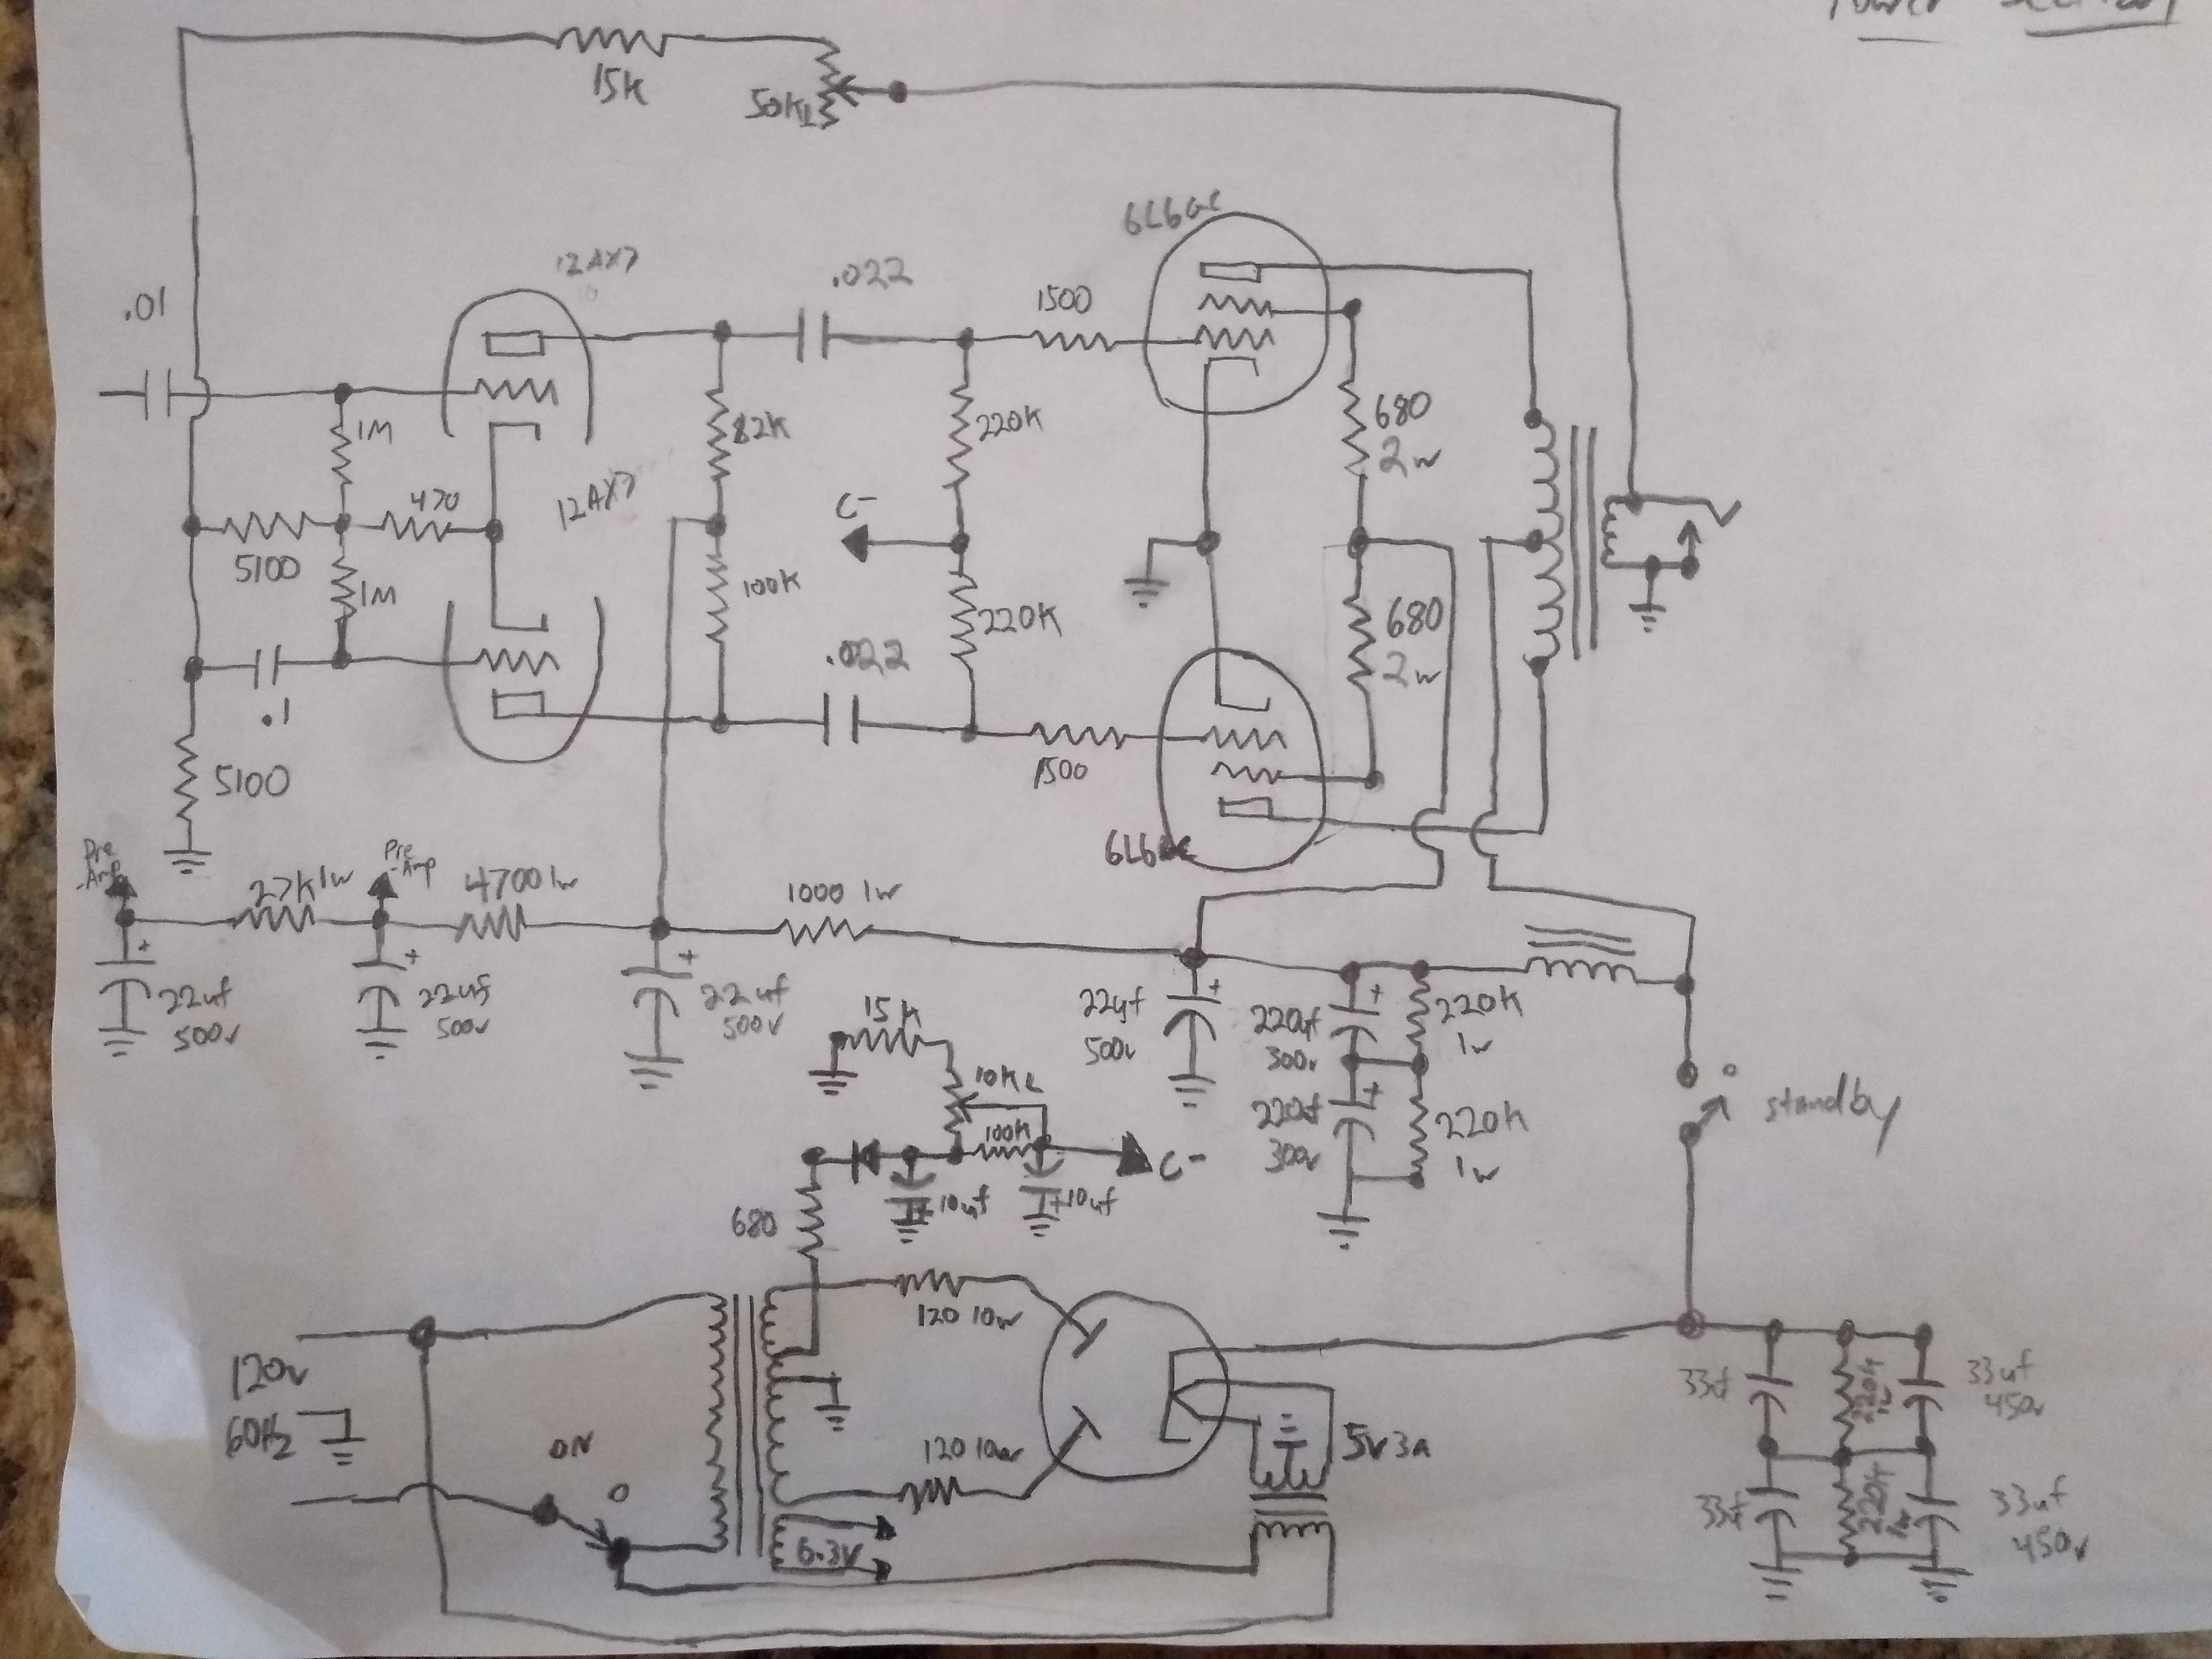 Power Section
15K
50KL
6L6GC
12AX7
.022
1500
.01
1M
82K
220K
680
2w
470
12AX7
C-
5100
1M
100K
220K
680
2w
.022
.1
1500
5100
6L6GC
Pre
-Amp
27K 1w
Pre
-Amp
4700 1w
1000 1w
+
22uf
500v
+
22uf
500v
+
22uf
500v
+
22uf
500v
+
220uf
300v
220K
1w
15K
10KL
100K
C-
+
220uf
300v
220K
1w
standby
680
+10uf
+10uf
120 10w
120v
60Hz
ON
120 10w
5v 3a
6.3V
33uf
220K
1w
33uf
450v
33uf
220K
1w
33uf
450v